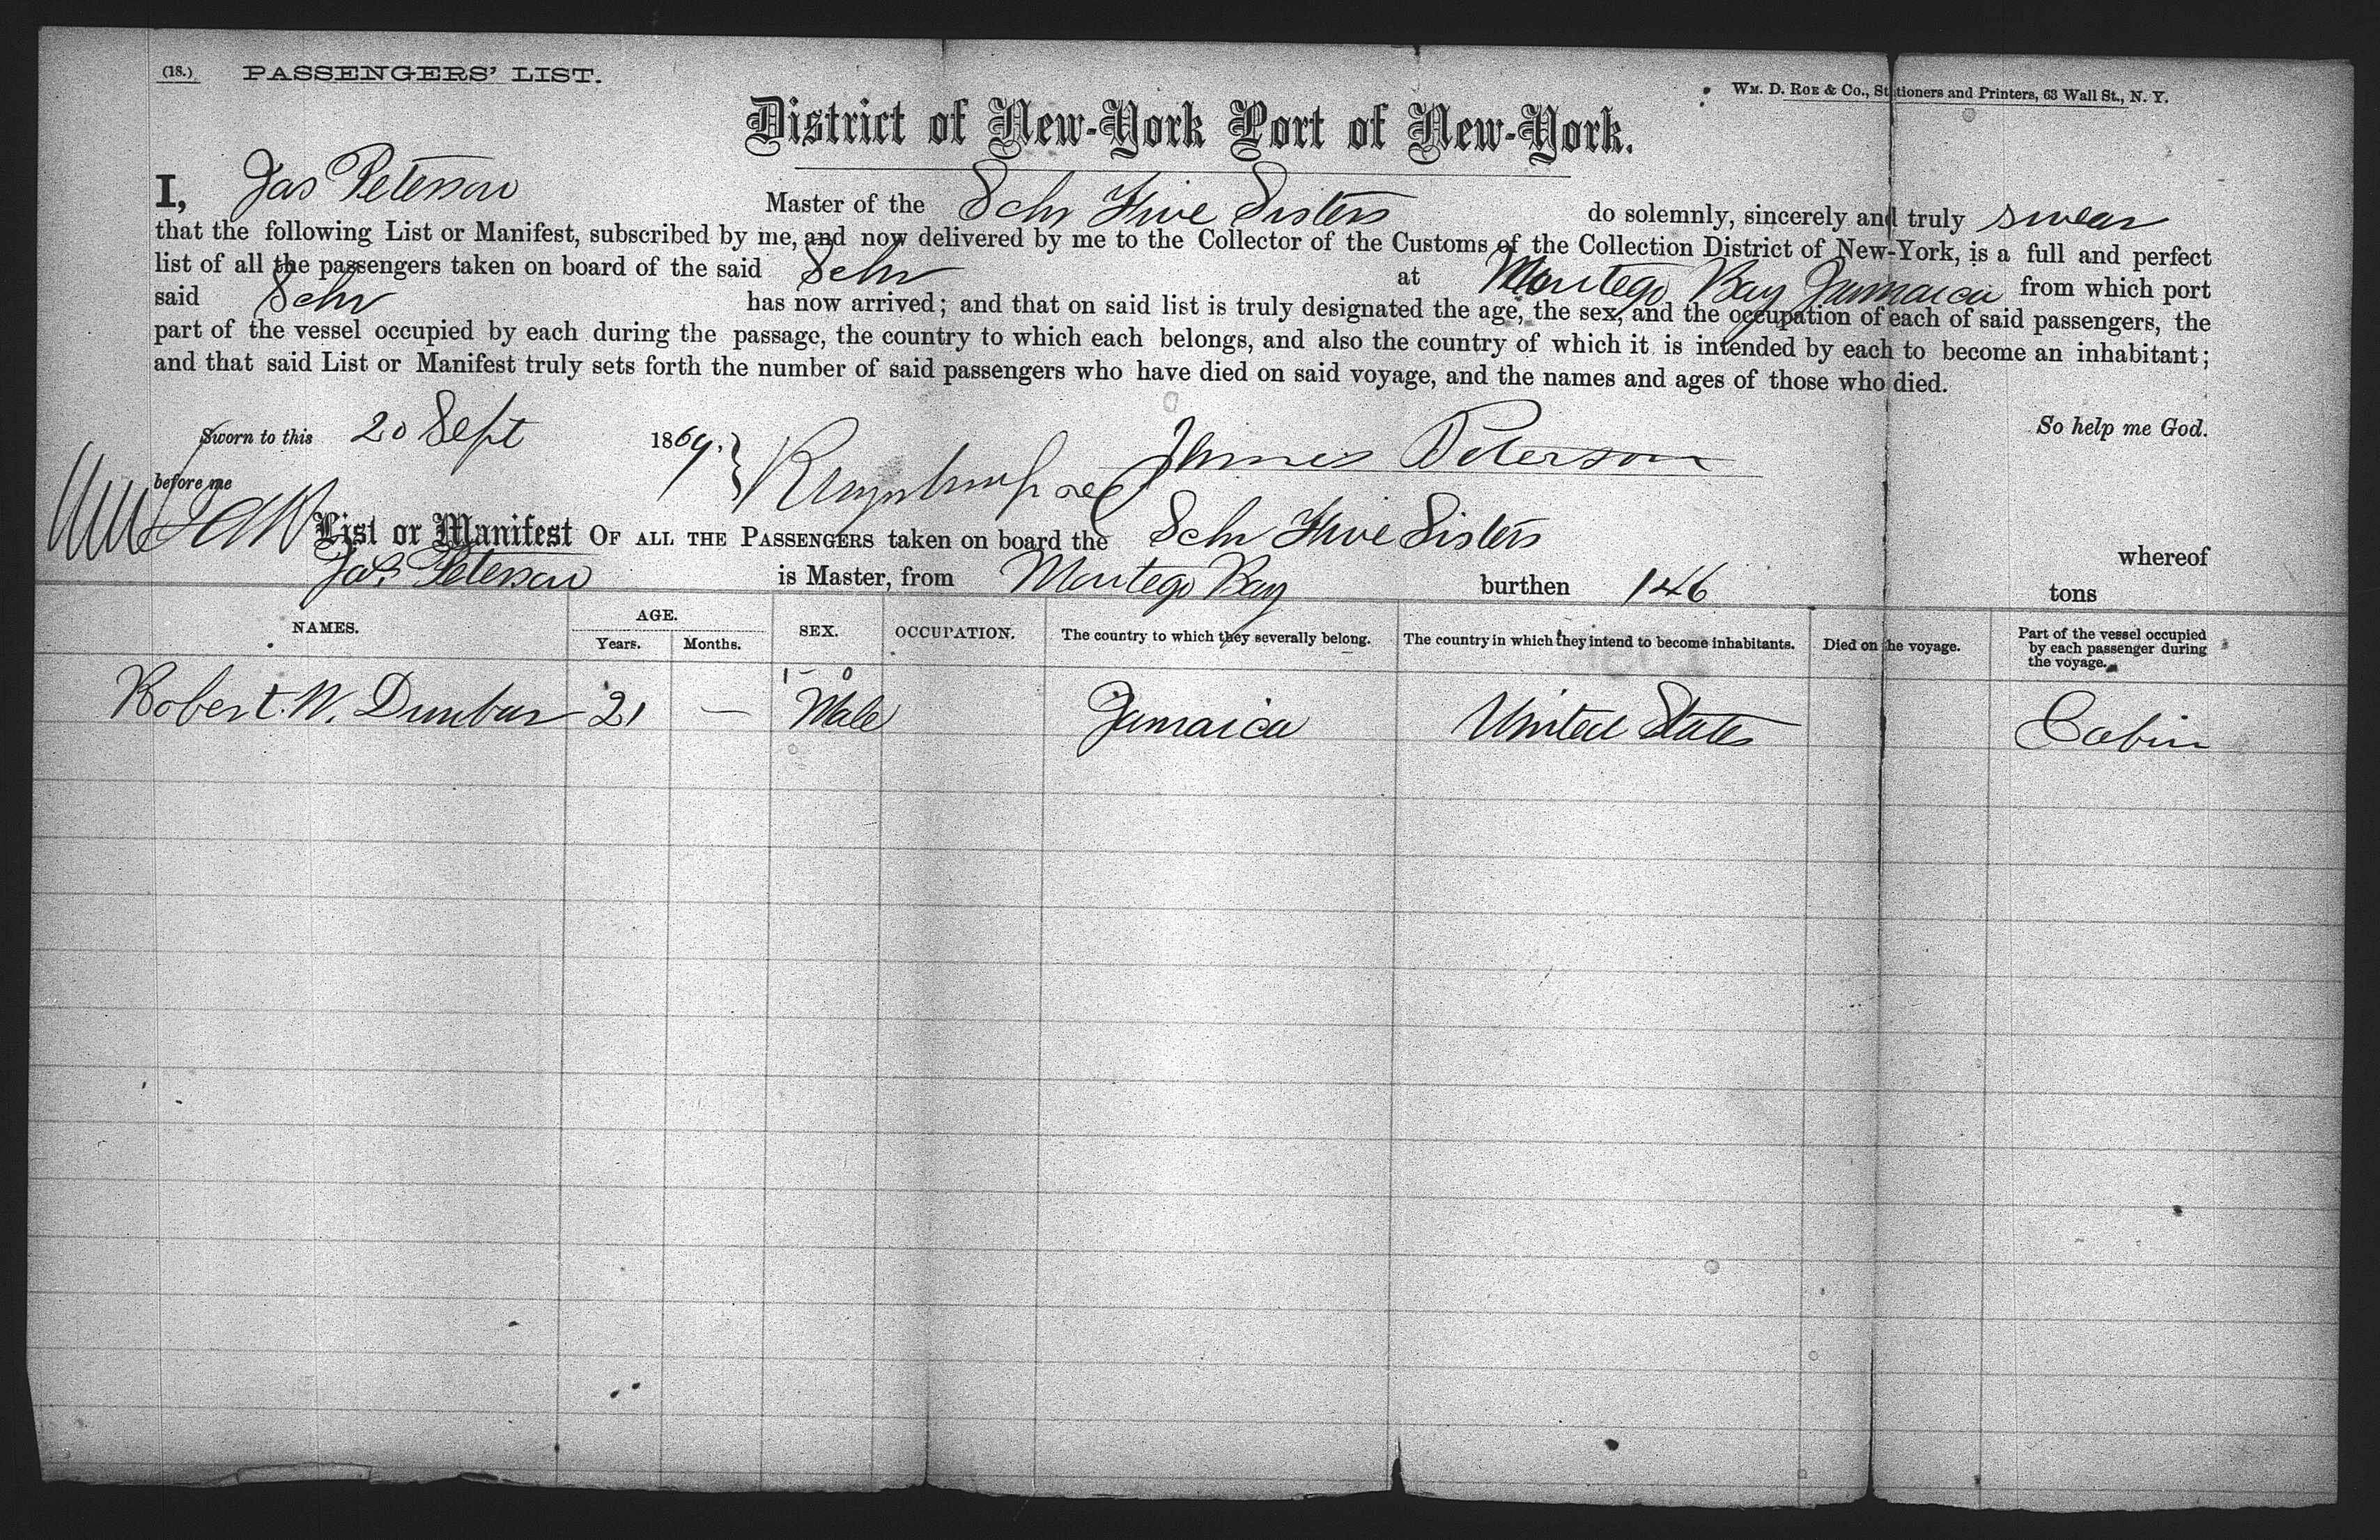 (18.) PASSENGERS' LIST.
Wm. D. Roe & Co., Stationers and Printers, 63 Wall St., N. Y.
District of New-York Port of New-York.
I, Jas Peterson Master of the Schr Five Sisters do solemnly, sincerely and truly swear
that the following List or Manifest, subscribed by me, and now delivered by me to the Collector of the Customs of the Collection District of New-York, is a full and perfect
list of all the passengers taken on board of the said Schr at Montego Bay Jamaica from which port
said Schr has now arrived; and that on said list is truly designated the age, the sex, and the occupation of each of said passengers, the
part of the vessel occupied by each during the passage, the country to which each belongs, and also the country of which it is intended by each to become an inhabitant;
and that said List or Manifest truly sets forth the number of said passengers who have died on said voyage, and the names and ages of those who died.
So help me God.
Sworn to this 20 Sept 1869. James Peterson
before me
List or Manifest OF ALL THE PASSENGERS taken on board the Schr Five Sisters whereof
Jas. Peterson is Master, from Montego Bay burthen 146 tons
NAMES. AGE. Years. Months. SEX. OCCUPATION. The country to which they severally belong. The country in which they intend to become inhabitants. Died on the voyage. Part of the vessel occupied by each passenger during the voyage.
1 - 0
Robert. W. Dunbar 21 — Male Jamaica United States Cabin